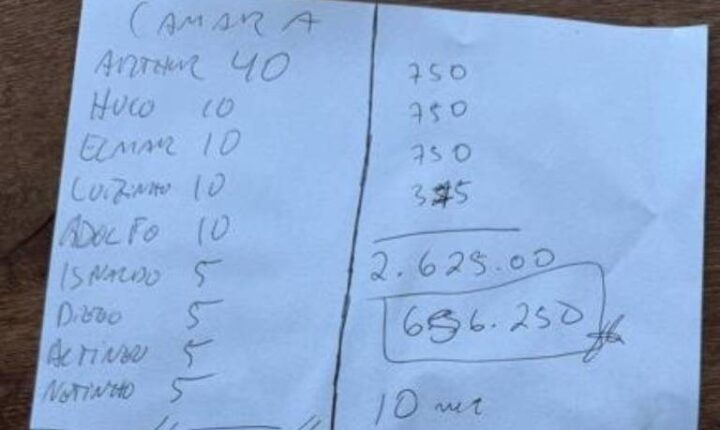 CAMARA
ARTHUR 40
HUGO 10
ELMAR 10
LUIZINHO 10
ADOLFO 10
ISNALDO 5
DIEGO 5
ALTINEU 5
NETINHO 5
" "
750
750
750
375
2.625.00
656.250
10